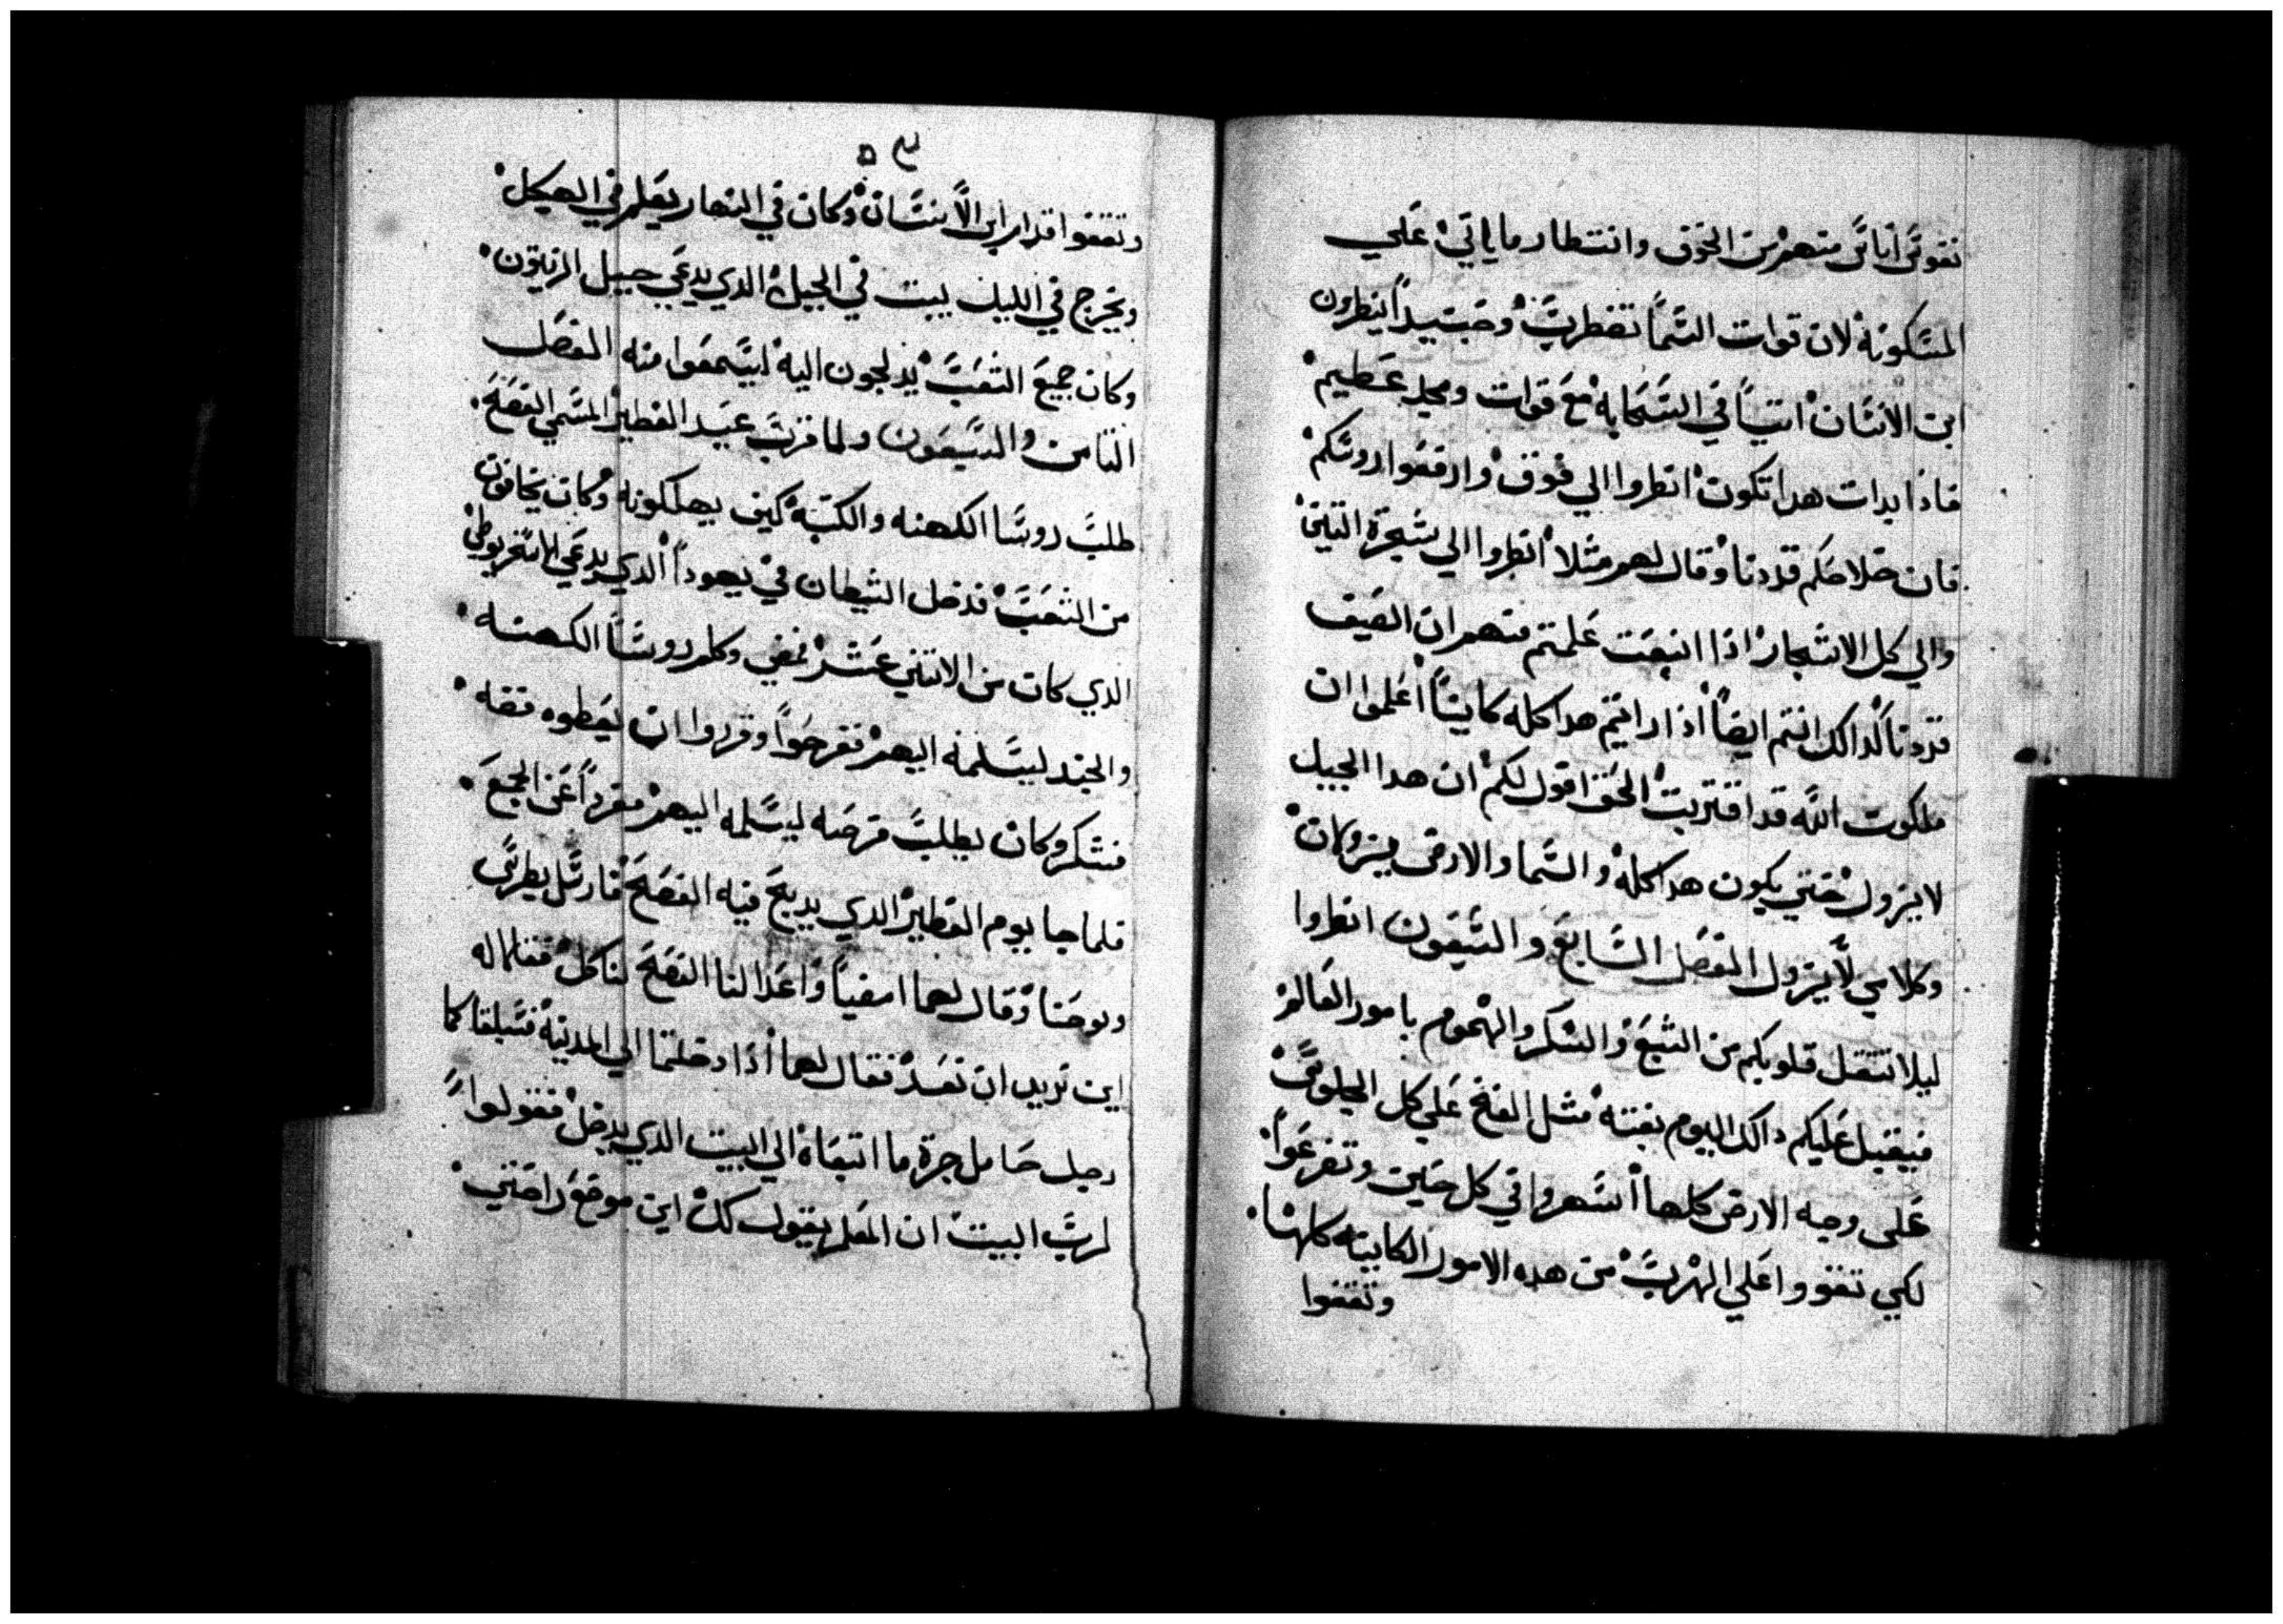 نفوس اناس منهم من الخوف وانتطار ما ياتي علي
المسكونة لان قوات السما تضطرب وحينيدا ينطرون
ابن الانسان اتيا في السحابه مع قوات ومجد عطيم
فاذا بدات هدا تكون انطروا الي فوق وارفعوا روسكم
فان خلاصكم قد دنا وقال لهم مثلا انطروا الي شجرة التين
والي كل الاشجار اذا اينعت علمتم منهم ان الصيف
قد دنا كدالك انتم ايضا اذا رايتم هدا كله كاينا اعلموا ان
ملكوت الله قد اقتربت الحق اقول لكم ان هدا الجيل
لا يزول حتي يكون هدا كله والسما والارض يزولان
وكلامي لا يزول الفصل السابع والسبعون انطروا
ليلا تتقل قلوبكم من الشبع والسكر والهموم بامور العالم
فيقبل عليكم دالك اليوم بغتة مثل الفخ علي كل الجلوس
علي وجه الارض كلها اسهروا في كل حين وتضرعوا
لكي تقووا علي الهرب من هده الامور الكاينه كلها
وتقفوا
وتقفوا قدام ابن الانسان وكان في النهار يعلم في الهيكل
ويخرج في الليل يبت في الجبل الدي يدعي جبل الزيتون
وكان جميع الشعب يدلجون اليه ليسمعوا منه الفصل
التامن والسبعون ولما قرب عيد الفطير المسمي الفصح
طلب روسا الكهنه والكتبة كيف يهلكونه وكان يخافون
من الشعب فدخل الشيطان في يهودا الدي يدعي الاسخريوطي
الدي كان من الاتني عشر فمضي وكلم روسا الكهنه
والجند ليسلمه اليهم ففرحوا وقرروا ان يعطوه فضه
فشكر وكان يطلب فرصه ليسلمه اليهم مفردا عن الجمع
فلما جا يوم الفطير الدي يدبح فيه الفصح فارسل بطرس
ويوحنا وقال لهما امضيا واعدا لنا الفصح لناكل فقالا له
اين تريد ان نعد فقال لهما اذا دخلتما الي المدينة فسيلقاكما
رجل حامل جرة ما اتبعاه الي البيت الدي يدخل فقولوا
لرب البيت ان المعلم يقول لك اين موضع راحتي